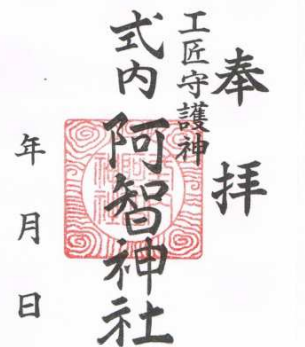 奉拝
工匠守護神
式内阿智神社
年月日